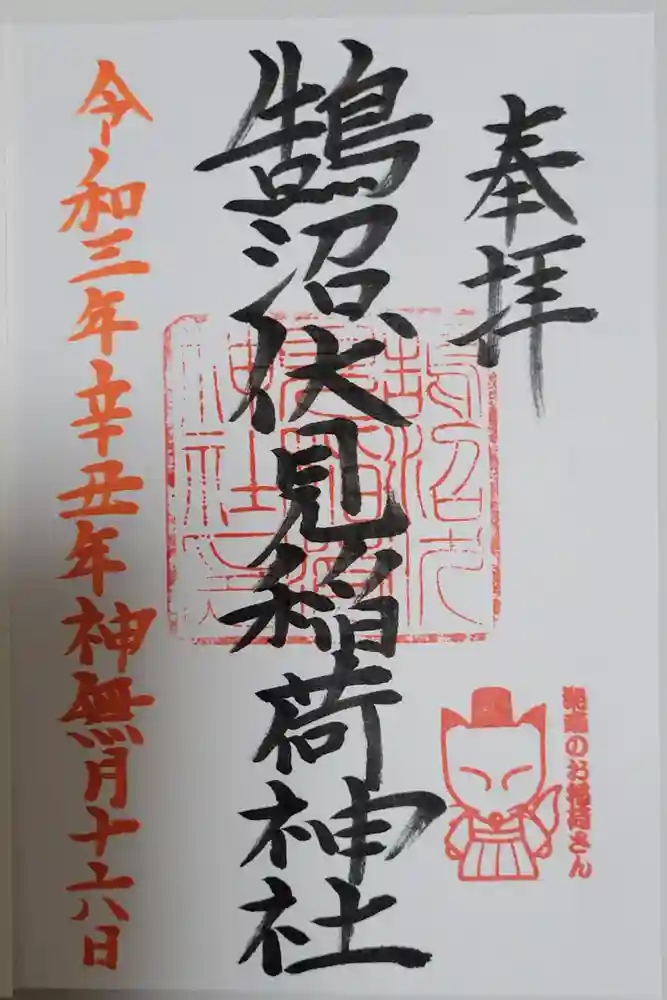 奉拝
鵠沼伏見稲荷神社
令和三年辛丑年神無月十六日
のお稲荷さん